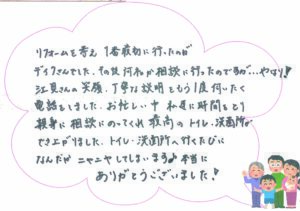 リフォームを考え、1番最初に行ったのが
デイクさんでした。その後 何社か相談に行ったのですが…やはり!
江見さんの笑顔、丁寧な説明をもう1度 伺いたく
電話をしました。お忙しい中 私達に時間をとり
親身に相談にのってくれ 最高の トイレ・洗面所が
でき上がりました。トイレ・洗面所へ行くたびに
なんだか ニヤニヤしてしまいます♪ 本当に
ありがとうございました!